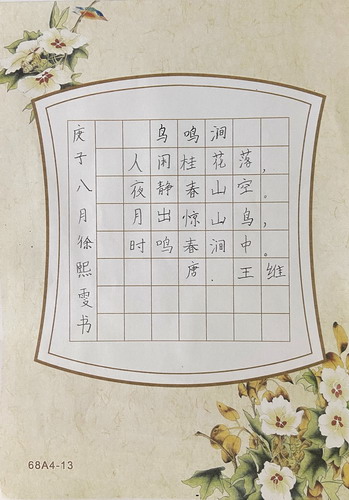 鸟鸣涧
人闲桂花落，
夜静春山空。
月出惊山鸟，
时鸣春涧中。
唐．王维
庚子八月徐熙雯书
68A4-13